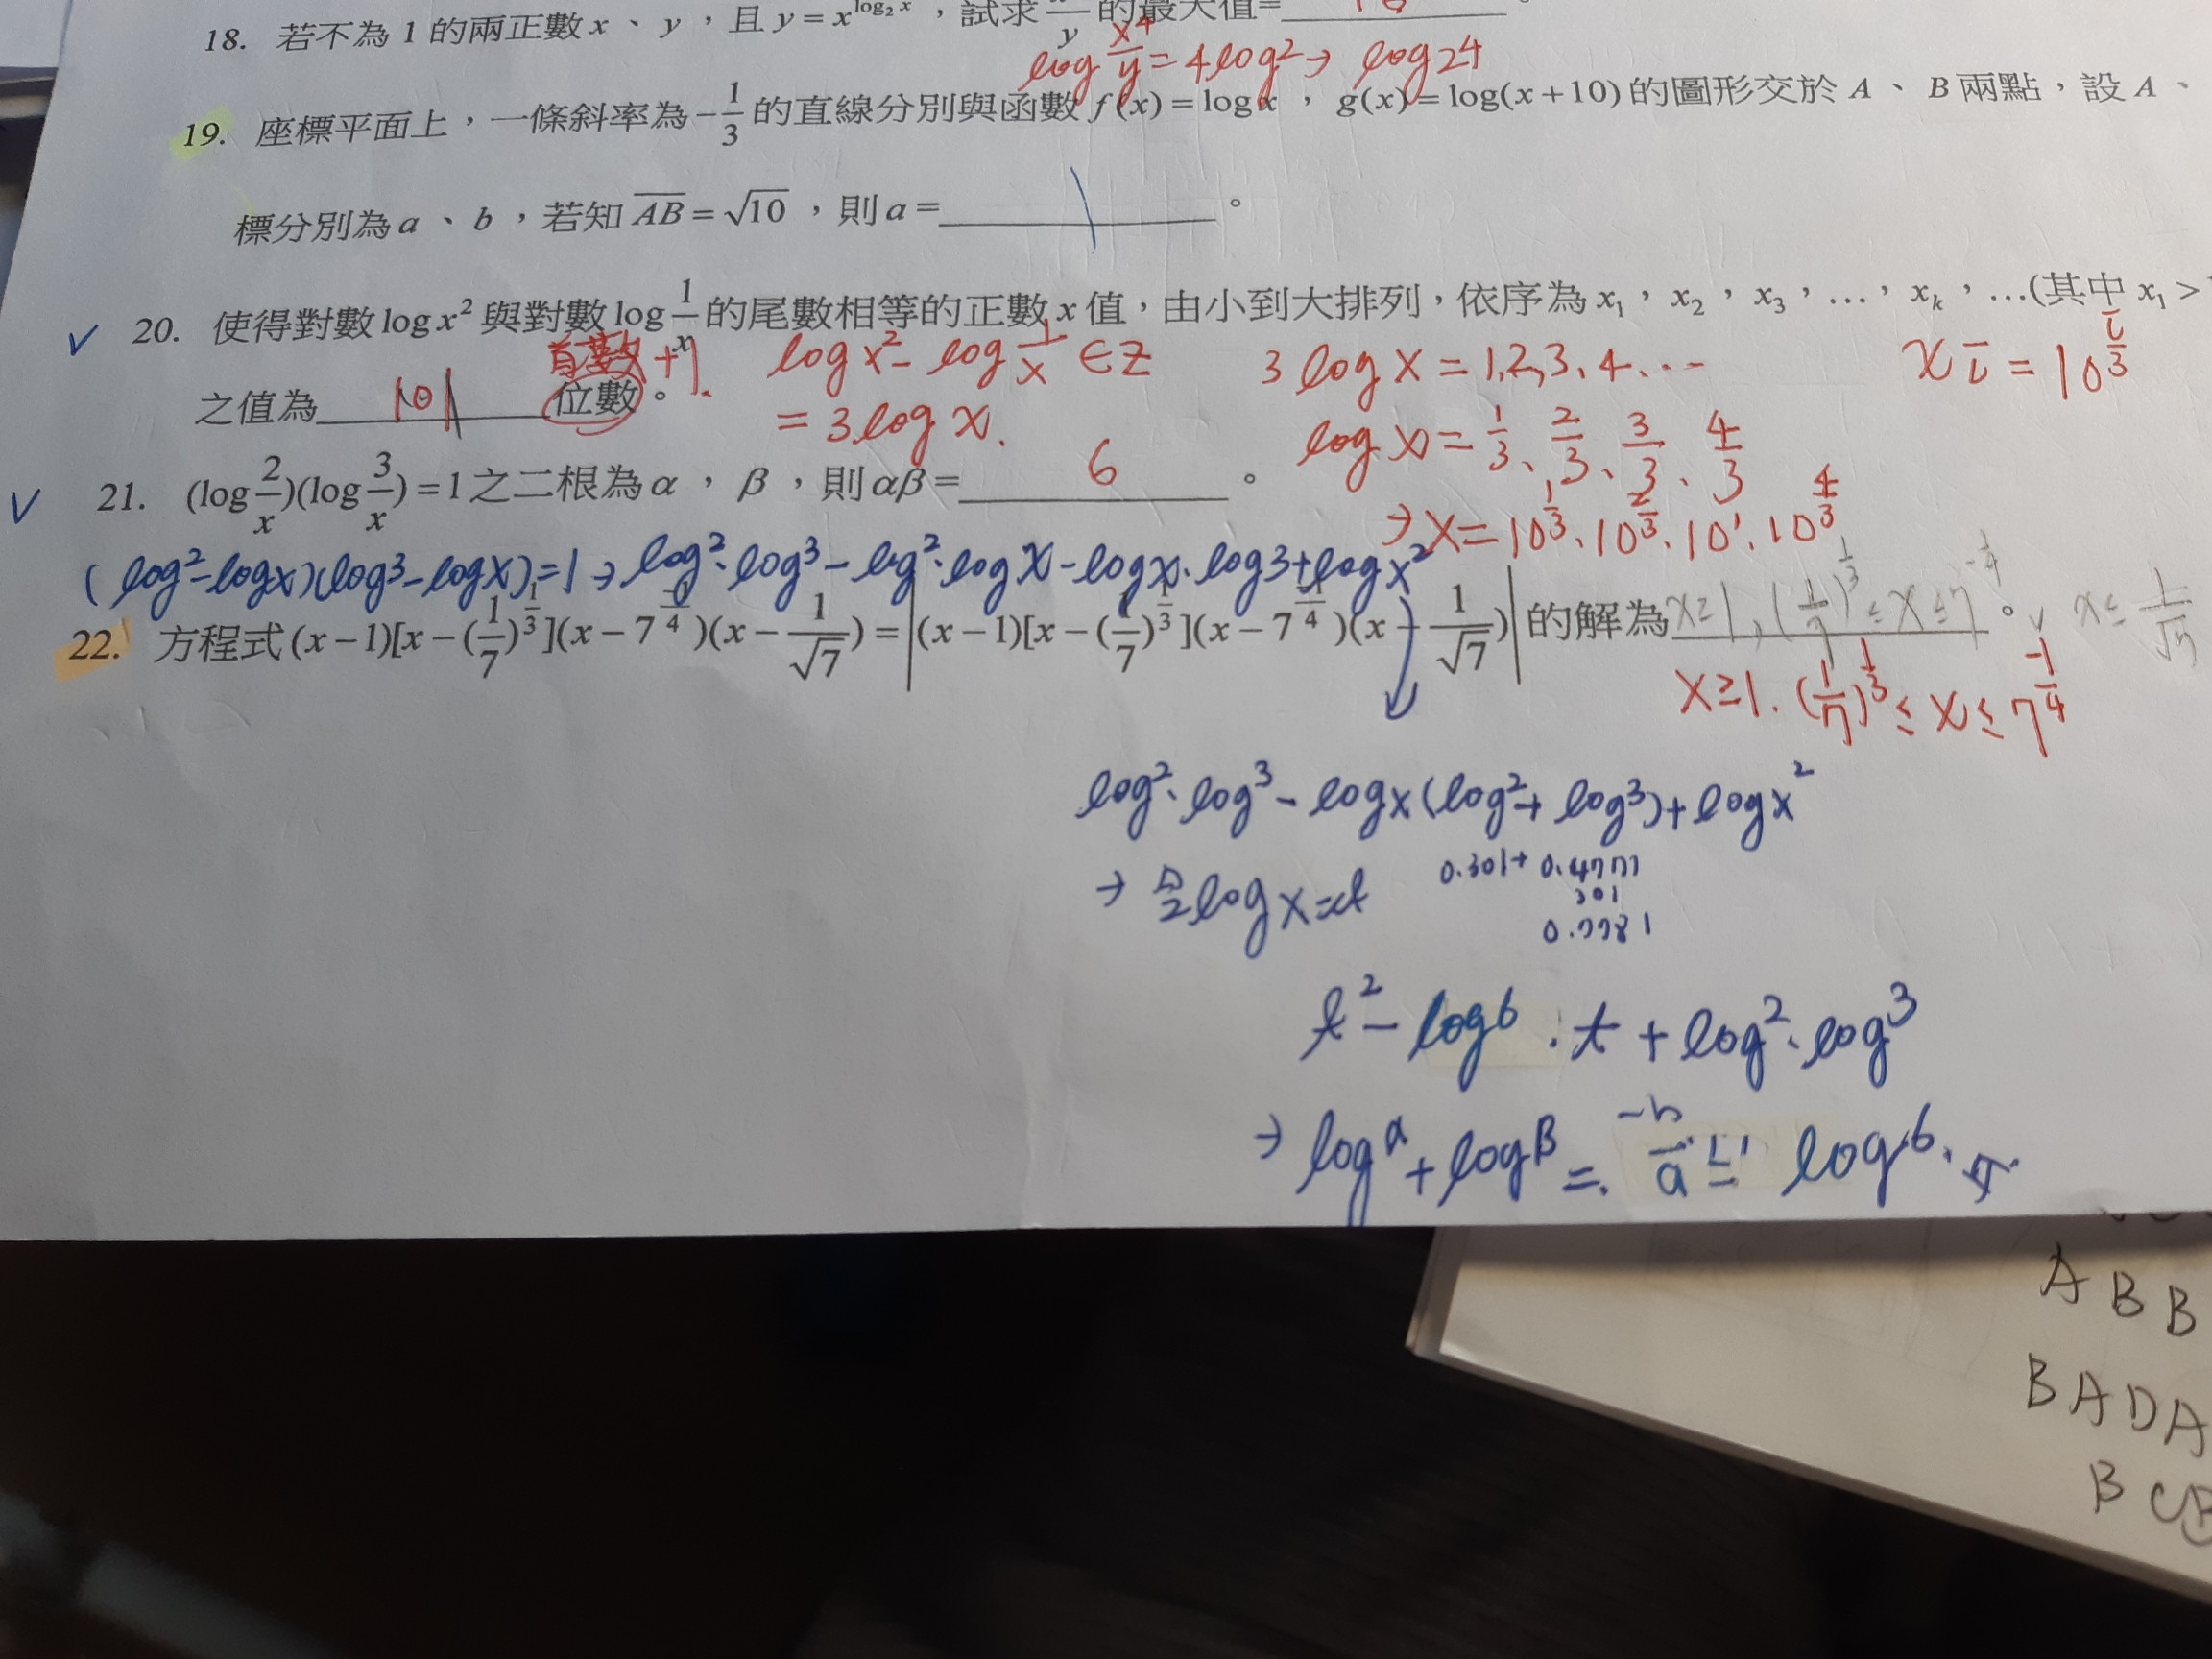 18. 若不為 1 的兩正數 x 、 y ,且 y = x^{log₂ x} ,試求 y 的最大值=
log x⁴/y = 4log2 → log 2⁴
19. 座標平面上,一條斜率為 -1/3 的直線分別與函數 f(x) = log x , g(x) = log(x+10) 的圖形交於 A 、 B 兩點,設 A 、
標分別為 a 、 b ,若知 AB = √10 ,則 a = 。
✓ 20. 使得對數 log x² 與對數 log 1/x 的尾數相等的正數 x 值,由小到大排列,依序為 x₁ , x₂ , x₃ ,…, x_k ,…(其中 x₁ >
首數+1. log x² - log 1/x ∈ Z 3 log x = 1,2,3、4… x_i = 10^{i/3}
之值為 101 位數。 = 3 log x. log x = 1/3、2/3、3/3、4/3
✓ 21. (log 2/x)(log 3/x) = 1 之二根為 α , β ,則 αβ = 6 。
→ x = 10^{1/3}、10^{2/3}、10¹、10^{4/3}
(log2-logx)(log3-logx)=1 → log2·log3-log2·logx-logx·log3+logx²
22. 方程式 (x-1)[x-(1/7)^{1/3}](x-7^{-1/4})(x-1/√7) = |(x-1)[x-(1/7)^{1/3}](x-7^{-1/4})(x-1/√7)| 的解為 x≥1, (1/7)^{1/3} ≤ x ≤ 7^{-1/4} 。 ✓ x ≤ 1/√7
x≥1. (1/7)^{1/3} ≤ x ≤ 7^{-1/4}
log2·log3-logx(log2+log3)+logx²
→ 令 logx=t 0.301+0.4771
301
0.7781
t²-log6·t+log2·log3
→ logα+logβ = -b/a = log6.
A B B
B A D A
B C B